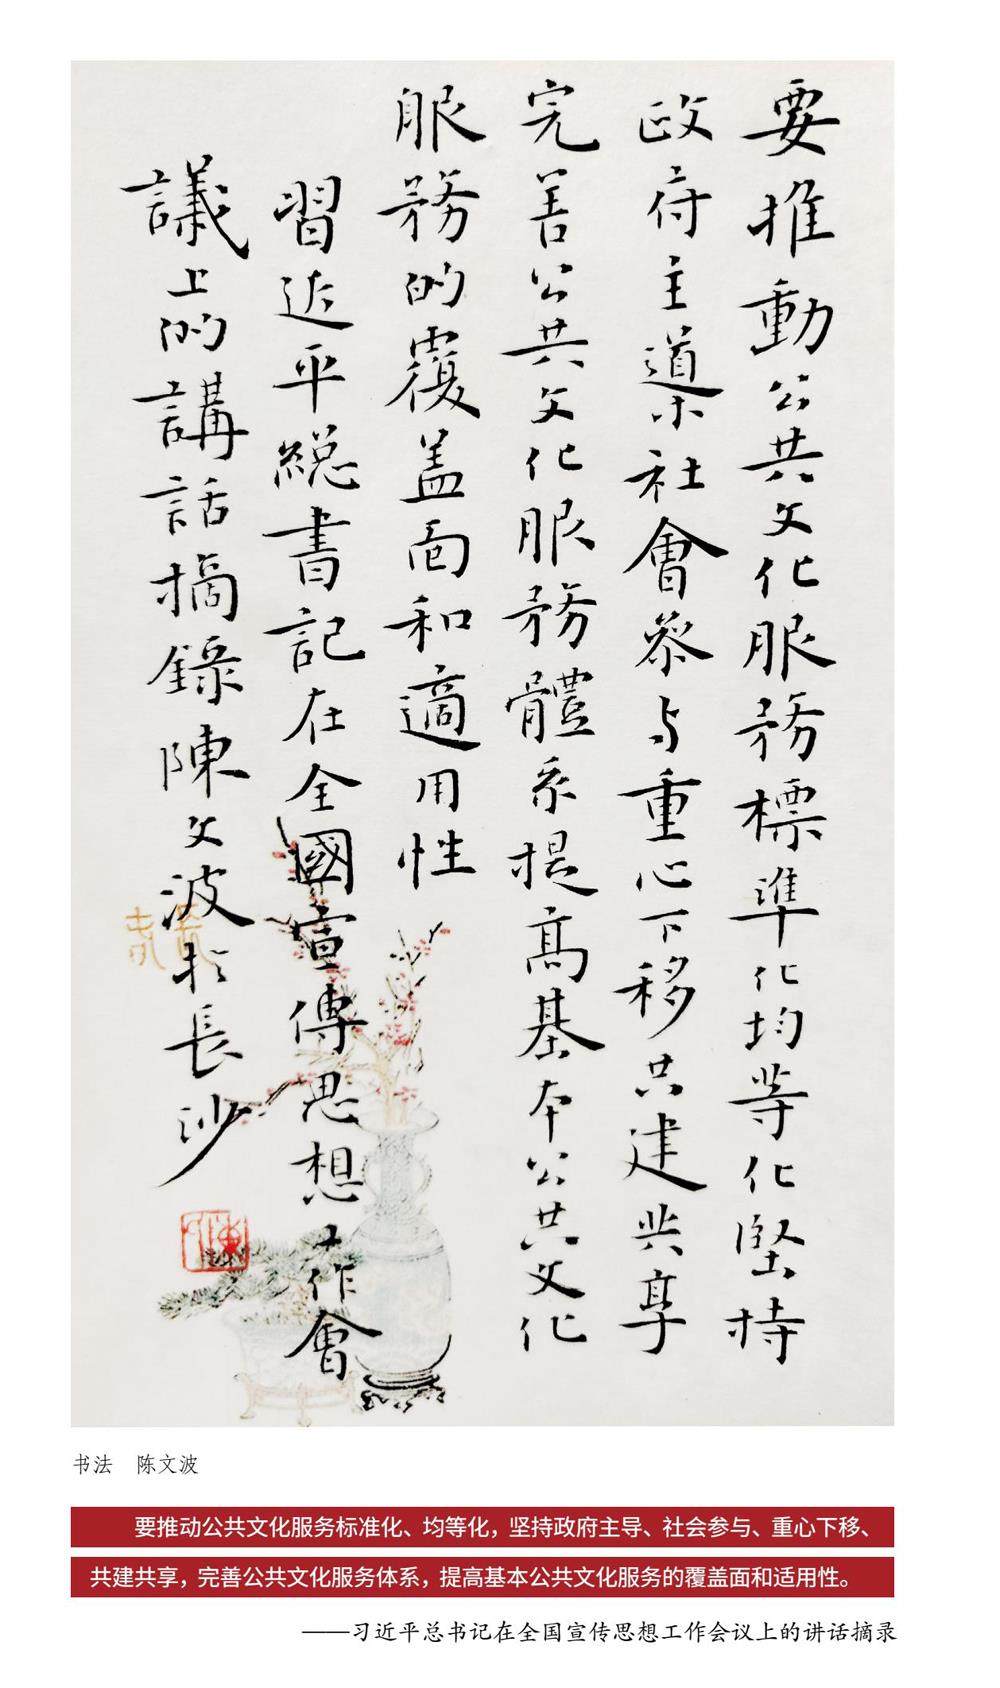 要推動公共文化服務標準化均等化堅持
政府主導社會參与重心下移共建共享
完善公共文化服務體系提高基本公共文化
服務的覆盖面和適用性
習近平總書記在全國宣傳思想工作會
議上的講話摘錄陳文波於長沙
书法 陈文波
要推动公共文化服务标准化、均等化，坚持政府主导、社会参与、重心下移、
共建共享，完善公共文化服务体系，提高基本公共文化服务的覆盖面和适用性。
——习近平总书记在全国宣传思想工作会议上的讲话摘录